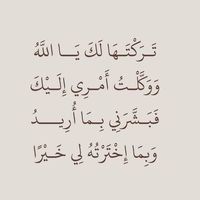 تَرَكْتُـهَا لَكَ يَـا اللَّهُ
وَوَكَّلْـتُ أَمْـرِي إِلَيْـكَ
فَبَشَّرَنِي بِمَا أُرِيـدُ
وَبِمَا إِخْتَرْتُهُ لِي خَيْرًا